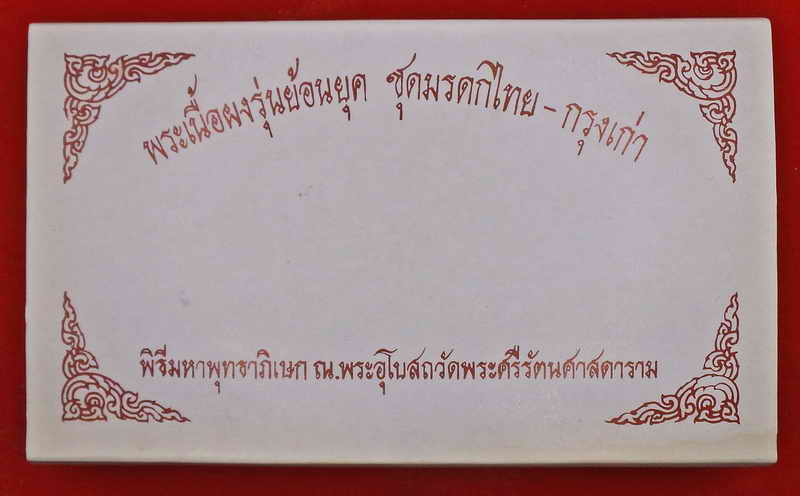 พระเนื้อผงรุ่นย้อนยุค ชุดมรดกไทย - กรุงเก่า
พิธีมหาพุทธาภิเษก ณ.พระอุโบสถวัดพระศรีรัตนศาสดาราม